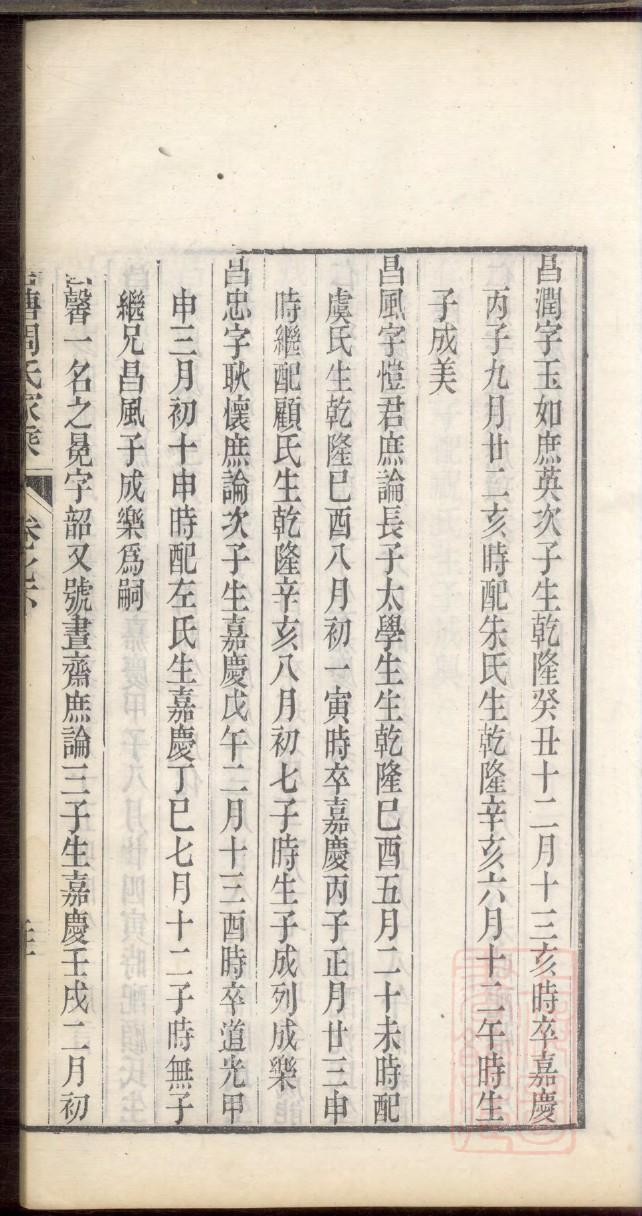 昌潤字玉如庶英次子生乾隆癸丑十二月十三亥時卒嘉慶
丙子九月廿二亥時配朱氏生乾隆辛亥六月十二午時生
子成美
昌風字愷君庶論長子太學生生乾隆己酉五月二十未時配
虞氏生乾隆己酉八月初一寅時卒嘉慶丙子正月廿三申
時繼配顧氏生乾隆辛亥八月初七子時生子成列成樂
昌忠字耿懷庶論次子生嘉慶戊午二月十三酉時卒道光甲
申三月初十申時配左氏生嘉慶丁巳七月十二子時無子
繼兄昌風子成樂爲嗣
馨一名之冕字韶又號晝齋庶論三子生嘉慶壬戌二月初
塘周氏家乘 卷之六